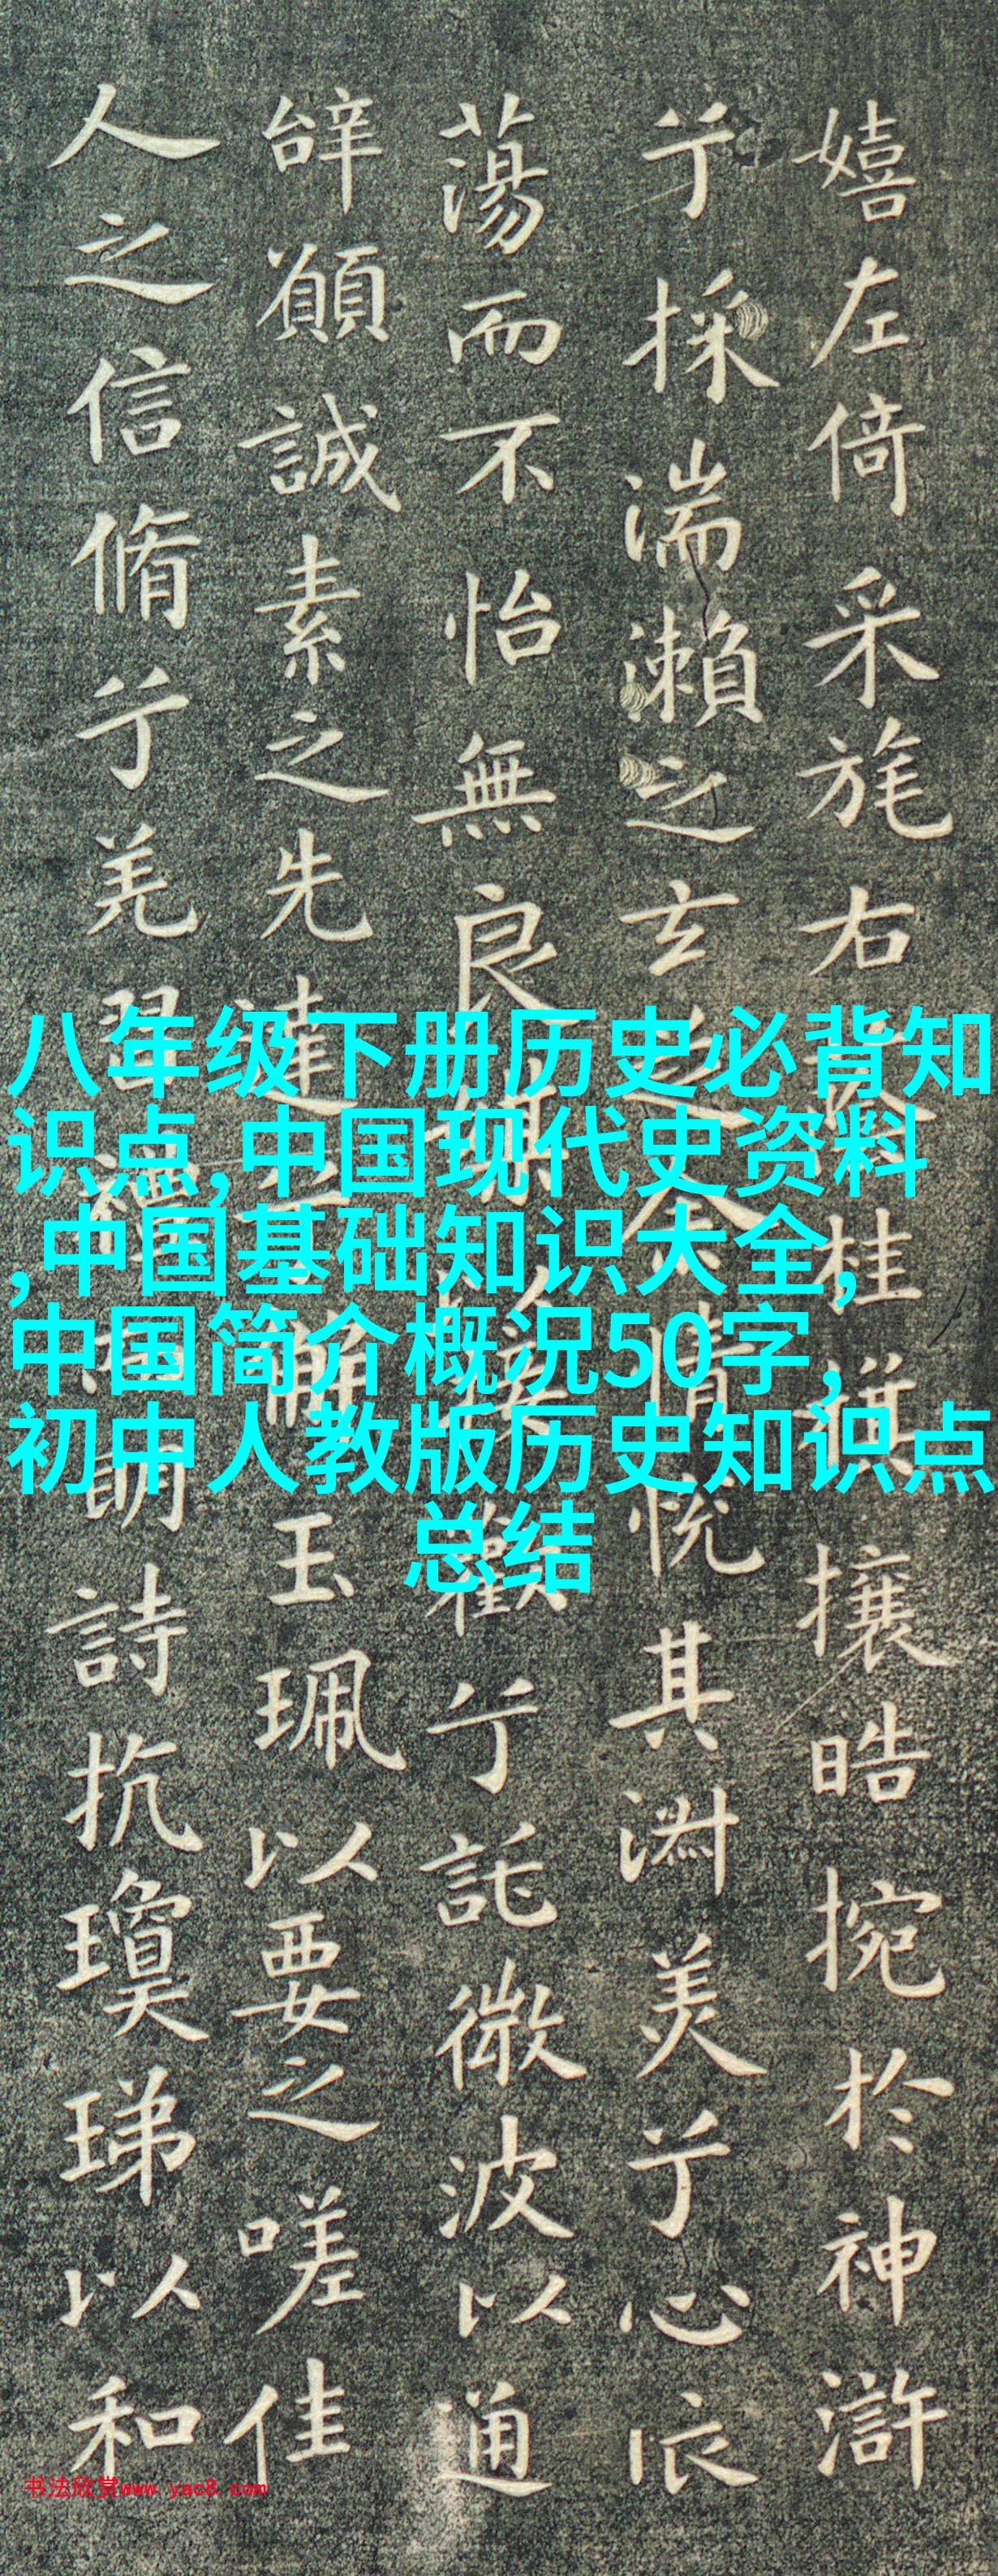 嬉左倚采旄右桂旗攘皓捥於神滸
兮採湍瀨之玄芝余情悅其淑美兮心
蕩而不怡無良媒接歡兮託微波以通
辭願誠素之先達解玉珮以要之嗟佳
人之信脩兮羌習禮明詩抗瓊珶以和
八年级下册历史必背知
识点,中国现代史资料
,中国基础知识大全,
中国简介概况50字,
初中人教版历史知识点
总结
书法欣赏www.yac8.com